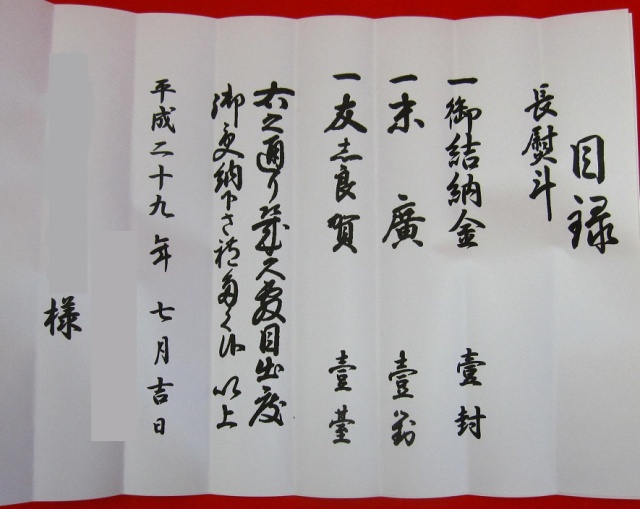 目録
長熨斗
一御結納金 壹封
一末廣 壹對
一友志良賀 壹臺
右之通り幾久敷目出度
御受納下さ禮度く候 以上
平成二十九年 七月吉日
様